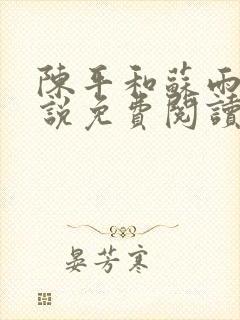 陳平和蘇雨
說免費閱讀
晏芳寒